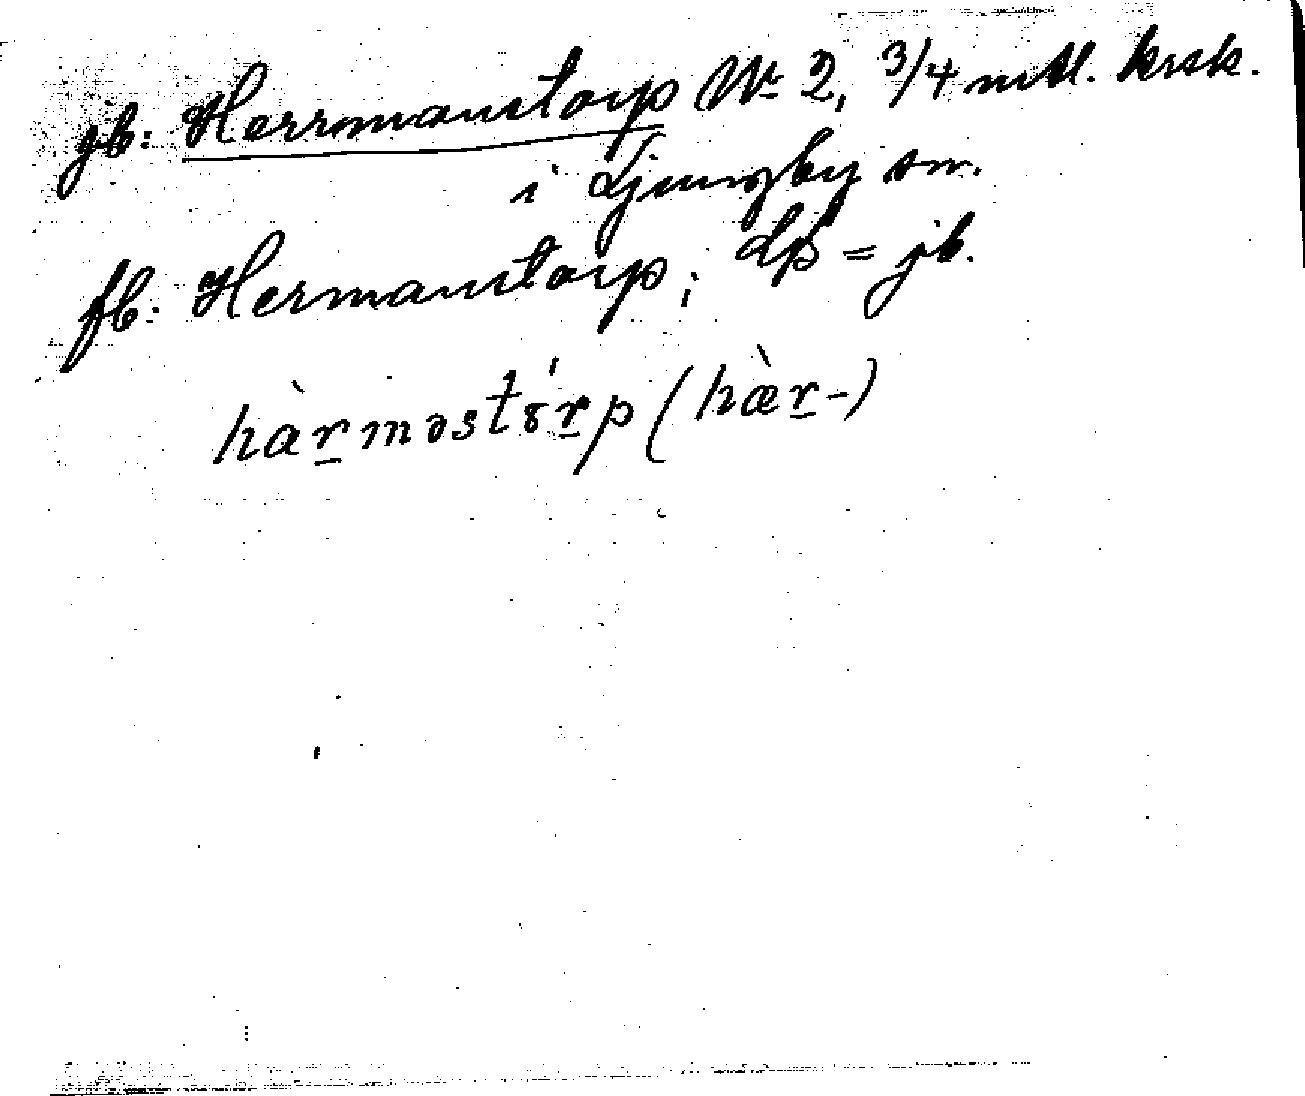 jb: Herrmanstorp No 2, 3/4 mtl. krsk.
i Ljungby sn.
fb: Hermanstorp; dp = jb.
hàrməstȣ́rp (hæ̀r-)